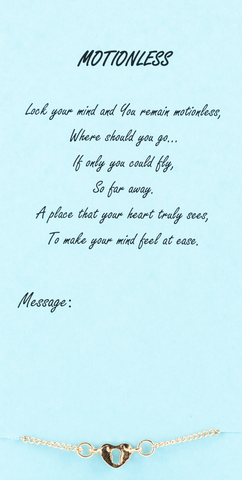 MOTIONLESS
Lock your mind and You remain motionless,
Where should you go...
If only you could fly,
So far away.
A place that your heart truly sees,
To make your mind feel at ease.
Message: